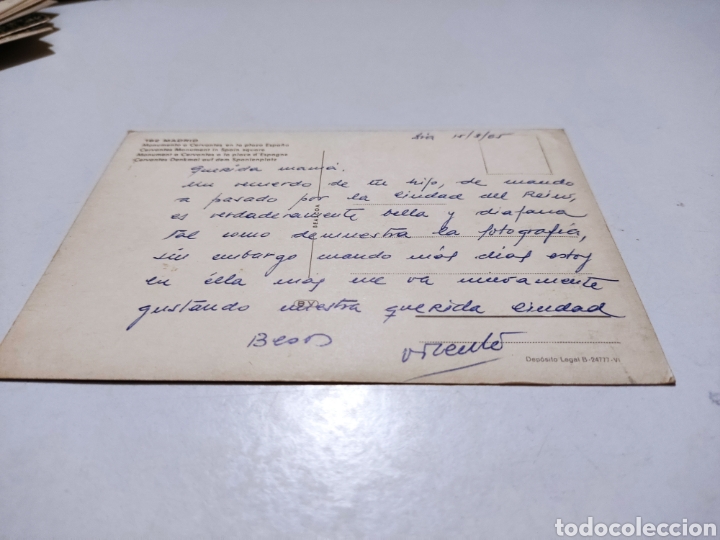 Día 15/8/65
Monumento a Cervantes en la plaza España
Cervantes Monument in Spain square
Monument a Cervantes a la place d'Espagne
Cervantes Denkmal auf dem Spanienplatz
Querida mamá.
Un recuerdo de tu hijo, de cuando
a pasado por la ciudad del Reino,
es verdaderamente bella y diafana
tal como demuestra la fotografía,
sin embargo cuando más dias estoy
en élla mas me va nuevamente
gustando nuestra querida ciudad
Besos
Vicente
BV
Depósito Legal B-24771-VI
todocoleccion